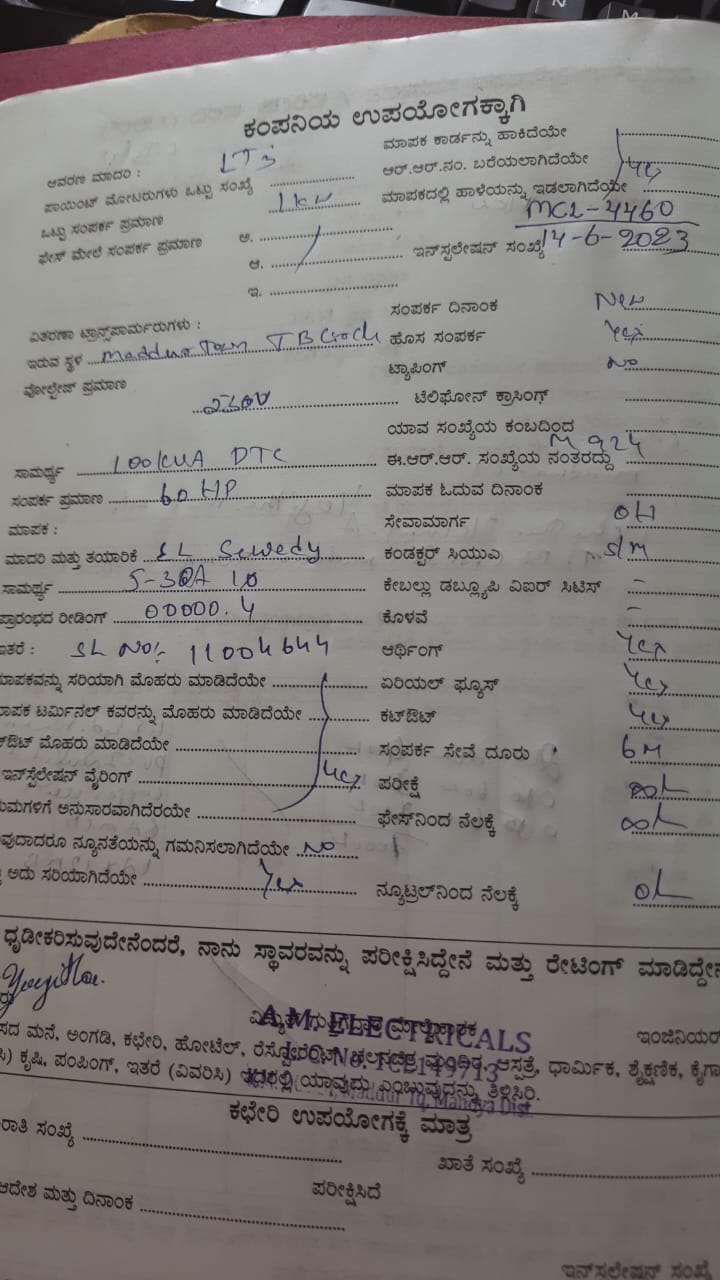 ಕಂಪನಿಯ ಉಪಯೋಗಕ್ಕಾಗಿ
ಆವರಣ ಮಾದರಿ : LT3
ಪಾಯಿಂಟ್ ಮೋಟರುಗಳು ಒಟ್ಟು ಸಂಖ್ಯೆ
ಒಟ್ಟು ಸಂಪರ್ಕ ಪ್ರಮಾಣ 1kw
ಫೇಸ್ ಮೇಲೆ ಸಂಪರ್ಕ ಪ್ರಮಾಣ ಅ.
ಆ.
ಇ.
ವಿತರಣಾ ಟ್ರಾನ್ಸ್‌ಫಾರ್ಮರುಗಳು :
ಇರುವ ಸ್ಥಳ Maddur Town TB
ವೋಲ್ಟೇಜ್ ಪ್ರಮಾಣ 230V
ಸಾಮರ್ಥ್ಯ 100 KVA DTC
ಸಂಪರ್ಕ ಪ್ರಮಾಣ 60 HP
ಮಾಪಕ :
ಮಾದರಿ ಮತ್ತು ತಯಾರಿಕೆ EL Sewedy
ಸಾಮರ್ಥ್ಯ 5-30A 1Ø
ಪ್ರಾರಂಭದ ರೀಡಿಂಗ್ 00000.4
ಇತರೆ : SL No:- 11004644
ಮಾಪಕವನ್ನು ಸರಿಯಾಗಿ ಮೊಹರು ಮಾಡಿದೆಯೇ
ಮಾಪಕ ಟರ್ಮಿನಲ್ ಕವರನ್ನು ಮೊಹರು ಮಾಡಿದೆಯೇ
ಮೊಹರು ಮಾಡಿದೆಯೇ
ಇನ್‌ಸ್ಪಲೇಷನ್ ವೈರಿಂಗ್ yes
ಅನುಸಾರವಾಗಿದೆರಯೇ
ನ್ಯೂನತೆಯನ್ನು ಗಮನಿಸಲಾಗಿದೆಯೇ No
ಅದು ಸರಿಯಾಗಿದೆಯೇ Yes
ಮಾಪಕ ಕಾರ್ಡನ್ನು ಹಾಕಿದೆಯೇ
ಆರ್.ಆರ್.ನಂ. ಬರೆಯಲಾಗಿದೆಯೇ yes
ಮಾಪಕದಲ್ಲಿ ಹಾಳೆಯನ್ನು ಇಡಲಾಗಿದೆಯೇ
MCL-4460
ಇನ್‌ಸ್ಪಲೇಷನ್ ಸಂಖ್ಯೆ 14-6-2023
ಸಂಪರ್ಕ ದಿನಾಂಕ New
ಹೊಸ ಸಂಪರ್ಕ Yes
ಟ್ಯಾಪಿಂಗ್ No
ಟೆಲಿಫೋನ್ ಕ್ರಾಸಿಂಗ್
ಯಾವ ಸಂಖ್ಯೆಯ ಕಂಬದಿಂದ
ಈ.ಆರ್.ಆರ್. ಸಂಖ್ಯೆಯ ನಂತರದ್ದು M 924
ಮಾಪಕ ಓದುವ ದಿನಾಂಕ
ಸೇವಾಮಾರ್ಗ OH
ಕಂಡಕ್ಟರ್ ಸಿಯುಎ S/M
ಕೇಬಲ್ಲು ಡಬ್ಲ್ಯೂಪಿ ವಿಐರ್ ಸಿಟಿಸ್ -
ಕೊಳವೆ -
ಆರ್ಥಿಂಗ್ Yes
ಏರಿಯಲ್ ಫ್ಯೂಸ್ Yes
ಕಟ್‌ಔಟ್ Yes
ಸಂಪರ್ಕ ಸೇವೆ ದೂರು 6M
ಪರೀಕ್ಷೆ
ಫೇಸ್‌ನಿಂದ ನೆಲಕ್ಕೆ
ನ್ಯೂಟ್ರಲ್‌ನಿಂದ ನೆಲಕ್ಕೆ
ಧೃಡೀಕರಿಸುವುದೇನೆಂದರೆ, ನಾನು ಸ್ಥಾವರವನ್ನು ಪರೀಕ್ಷಿಸಿದ್ದೇನೆ ಮತ್ತು ರೇಟಿಂಗ್ ಮಾಡಿದ್ದೇನೆ
A.M. ELECTRICALS
ಇಂಜಿನಿಯರ್
L.C. No. 1CE149713
Maddur Tq, Mandya Dist
ಮನೆ, ಅಂಗಡಿ, ಕಛೇರಿ, ಹೋಟೆಲ್, ರೆಸ್ಟೋರೆಂಟ್, ಆಸ್ಪತ್ರೆ, ಧಾರ್ಮಿಕ, ಶೈಕ್ಷಣಿಕ,
ಕೃಷಿ, ಪಂಪಿಂಗ್, ಇತರೆ (ವಿವರಿಸಿ) ಇದರಲ್ಲಿ ಯಾವುದು ಎಂಬುವುದನ್ನು ತಿಳಿಸಿರಿ.
ಕಛೇರಿ ಉಪಯೋಗಕ್ಕೆ ಮಾತ್ರ
ಸಂಖ್ಯೆ
ಖಾತೆ ಸಂಖ್ಯೆ
ಆದೇಶ ಮತ್ತು ದಿನಾಂಕ
ಪರೀಕ್ಷಿಸಿದೆ
ಇನ್‌ಸ್ಪಲೇಷನ್ ಸಂಖ್ಯೆ